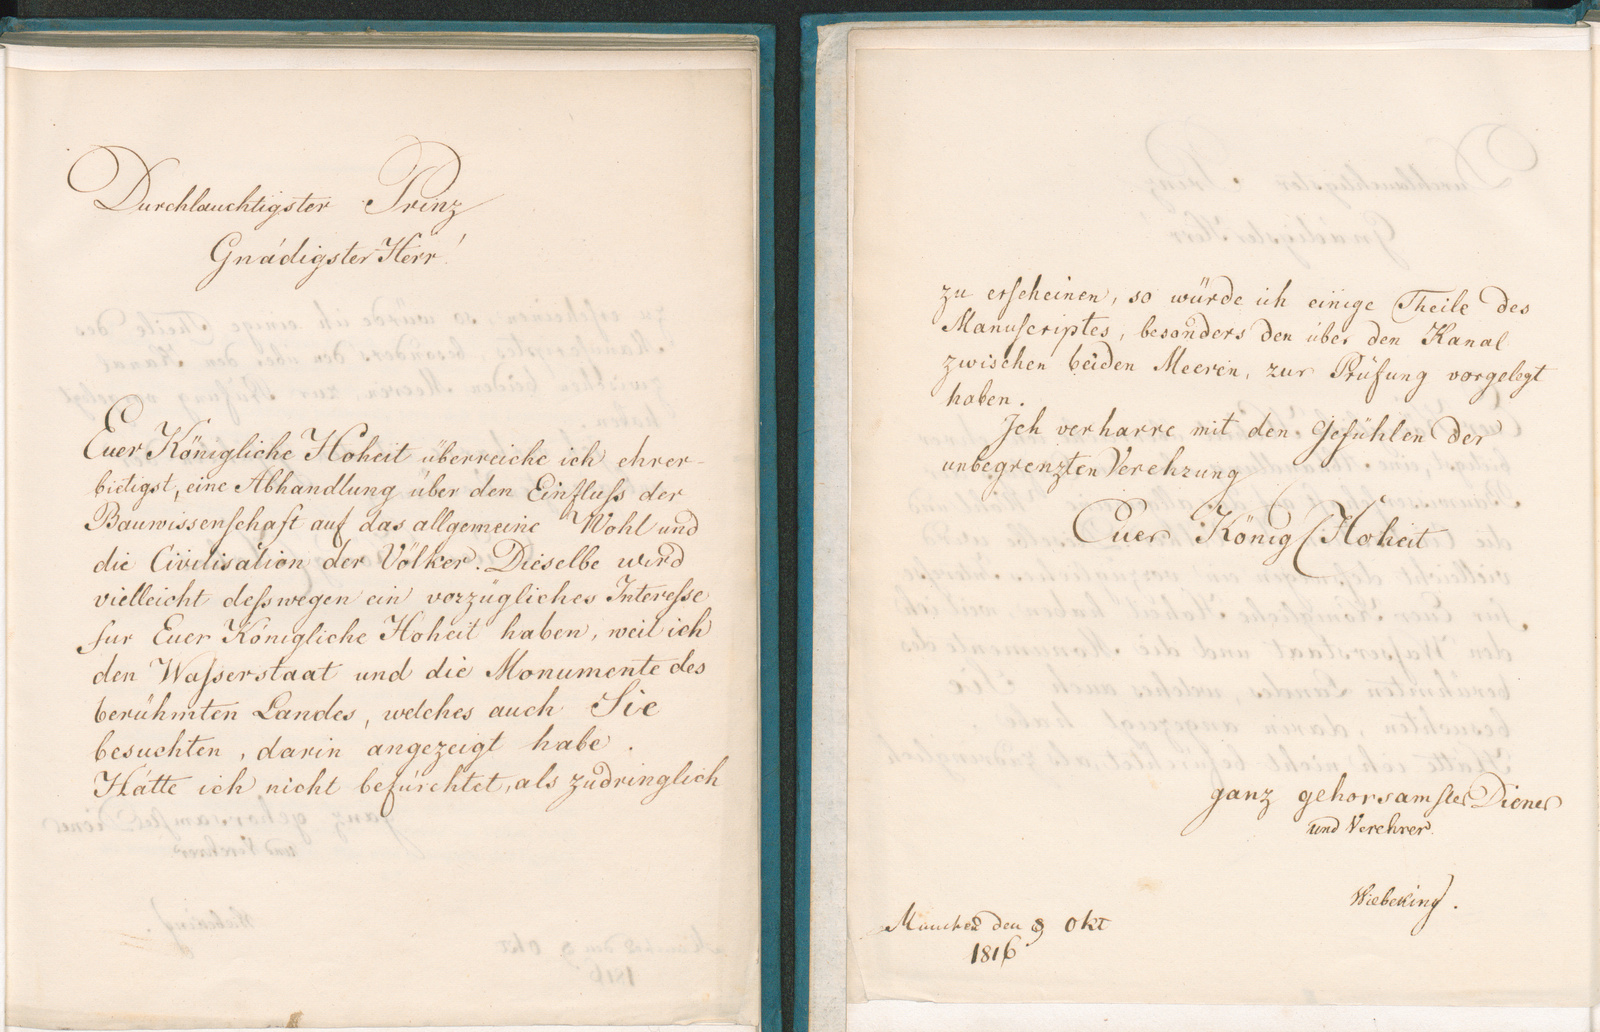 Durchlauchtigster Prinz
Gnädigster Herr!
Euer Königliche Hoheit überreiche ich ehrer-
bietigst, eine Abhandlung über den Einfluſs der
Bauwissenſchaft auf das allgemeine Wohl und
die Civilisation der Völker. Dieselbe wird
vielleicht deſswegen ein vorzügliches Intereſse
für Euer Königliche Hoheit haben, weil ich
den Waſserstaat und die Monumente des
berühmten Landes, welches auch Sie
besuchten, darin angezeigt habe.
Hätte ich nicht befürchtet, als zudringlich
zu erſcheinen, so würde ich einige Theile des
Manuſcriptes, besonders den über den Kanal
zwischen beiden Meeren, zur Prüfung vorgelegt
haben.
Ich verharre mit den Gefühlen der
unbegrenzten Verehrung
Euer König Hoheit
ganz gehorsamſter Diener
und Verehrer.
Wiebeking.
München den Okt
1816